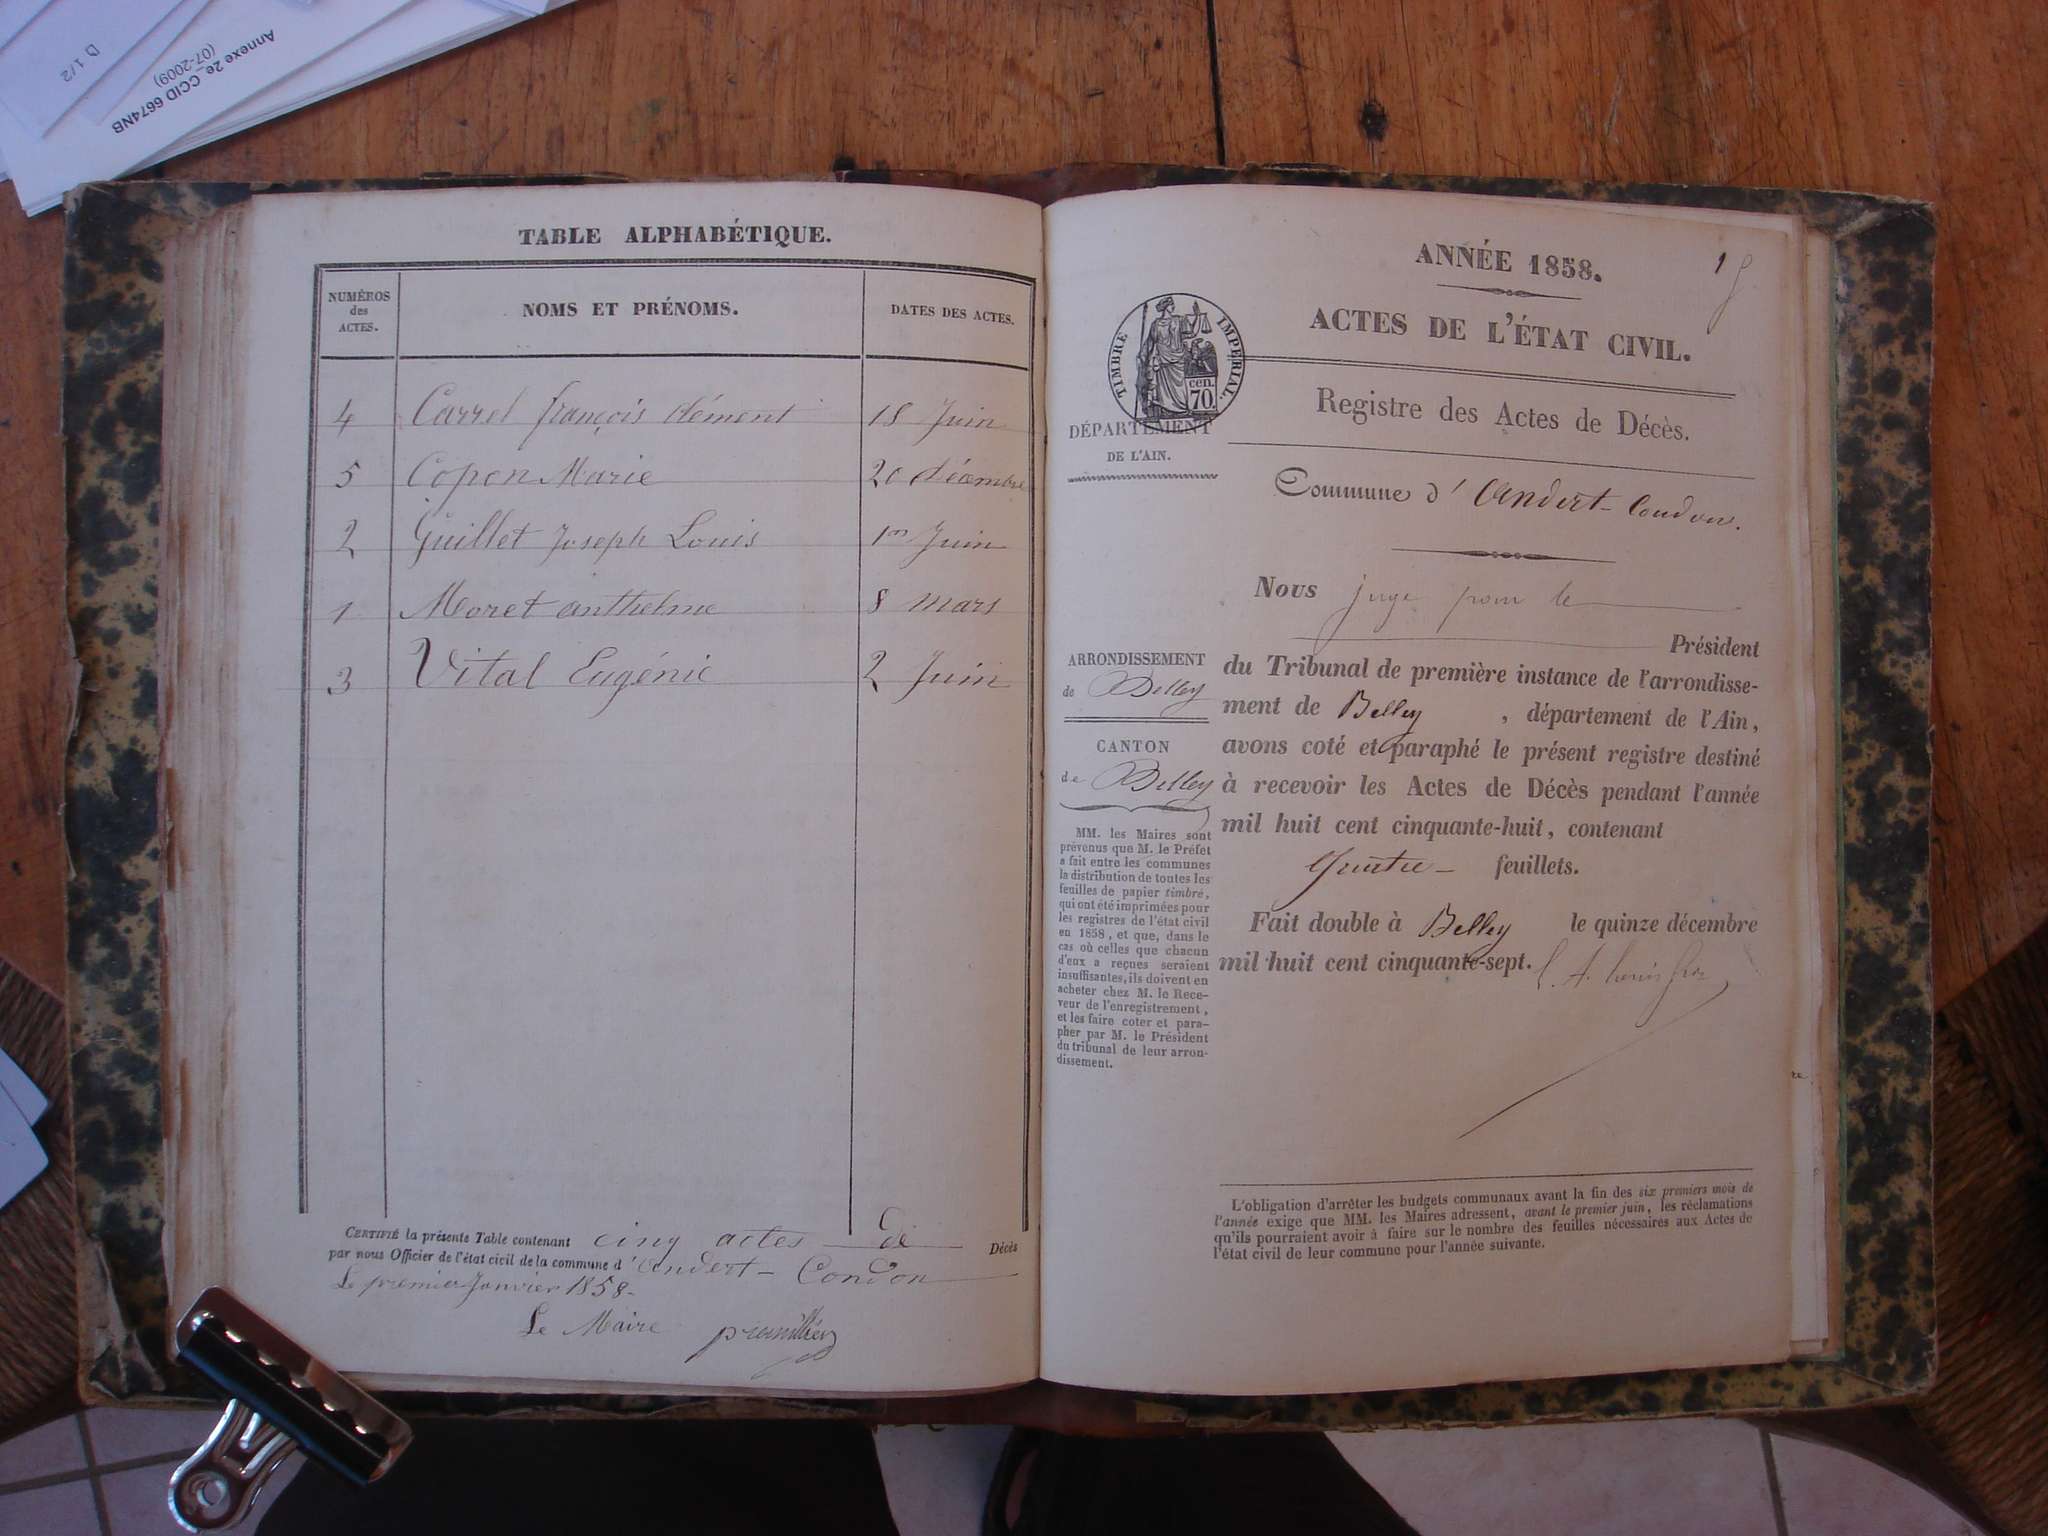 D 1/2
Annexe 2e_CCID 6674NB
(07-2009)
TABLE ALPHABÉTIQUE.
NUMÉROS
des
ACTES.
NOMS ET PRÉNOMS.
DATES DES ACTES.
4 Carrel françois clément 18 Juin
5 Copon Marie 20 décembre
2 Guillet Joseph Louis 1er Juin
1 Moret anthelme 8 mars
3 Vital Eugénie 2 Juin
CERTIFIÉ la présente Table contenant cinq actes de Décès
par nous Officier de l'état civil de la commune d'Andert-Condon
Le premier Janvier 1858.
Le Maire
ANNÉE 1858.
1
ACTES DE L'ÉTAT CIVIL.
TIMBRE IMPÉRIAL.
cen.
70
Registre des Actes de Décès.
DÉPARTEMENT
DE L'AIN.
Commune d'Andert-Condon.
Nous juge pour le
Président
du Tribunal de première instance de l'arrondisse-
ment de Belley, département de l'Ain,
avons coté et paraphé le présent registre destiné
à recevoir les Actes de Décès pendant l'année
mil huit cent cinquante-huit, contenant
feuillets.
Fait double à Belley le quinze décembre
mil huit cent cinquante-sept.
ARRONDISSEMENT
de Belley
CANTON
de Belley
MM. les Maires sont
prévenus que M. le Préfet
a fait entre les communes
la distribution de toutes les
feuilles de papier timbré,
qui ont été imprimées pour
les registres de l'état civil
en 1858, et que, dans le
cas où celles que chacun
d'eux a reçues seraient
insuffisantes, ils doivent en
acheter chez M. le Rece-
veur de l'enregistrement,
et les faire coter et para-
pher par M. le Président
du tribunal de leur arron-
dissement.
L'obligation d'arrêter les budgets communaux avant la fin des six premiers mois de
l'année exige que MM. les Maires adressent, avant le premier juin, les réclamations
qu'ils pourraient avoir à faire sur le nombre des feuilles nécessaires aux Actes de
l'état civil de leur commune pour l'année suivante.